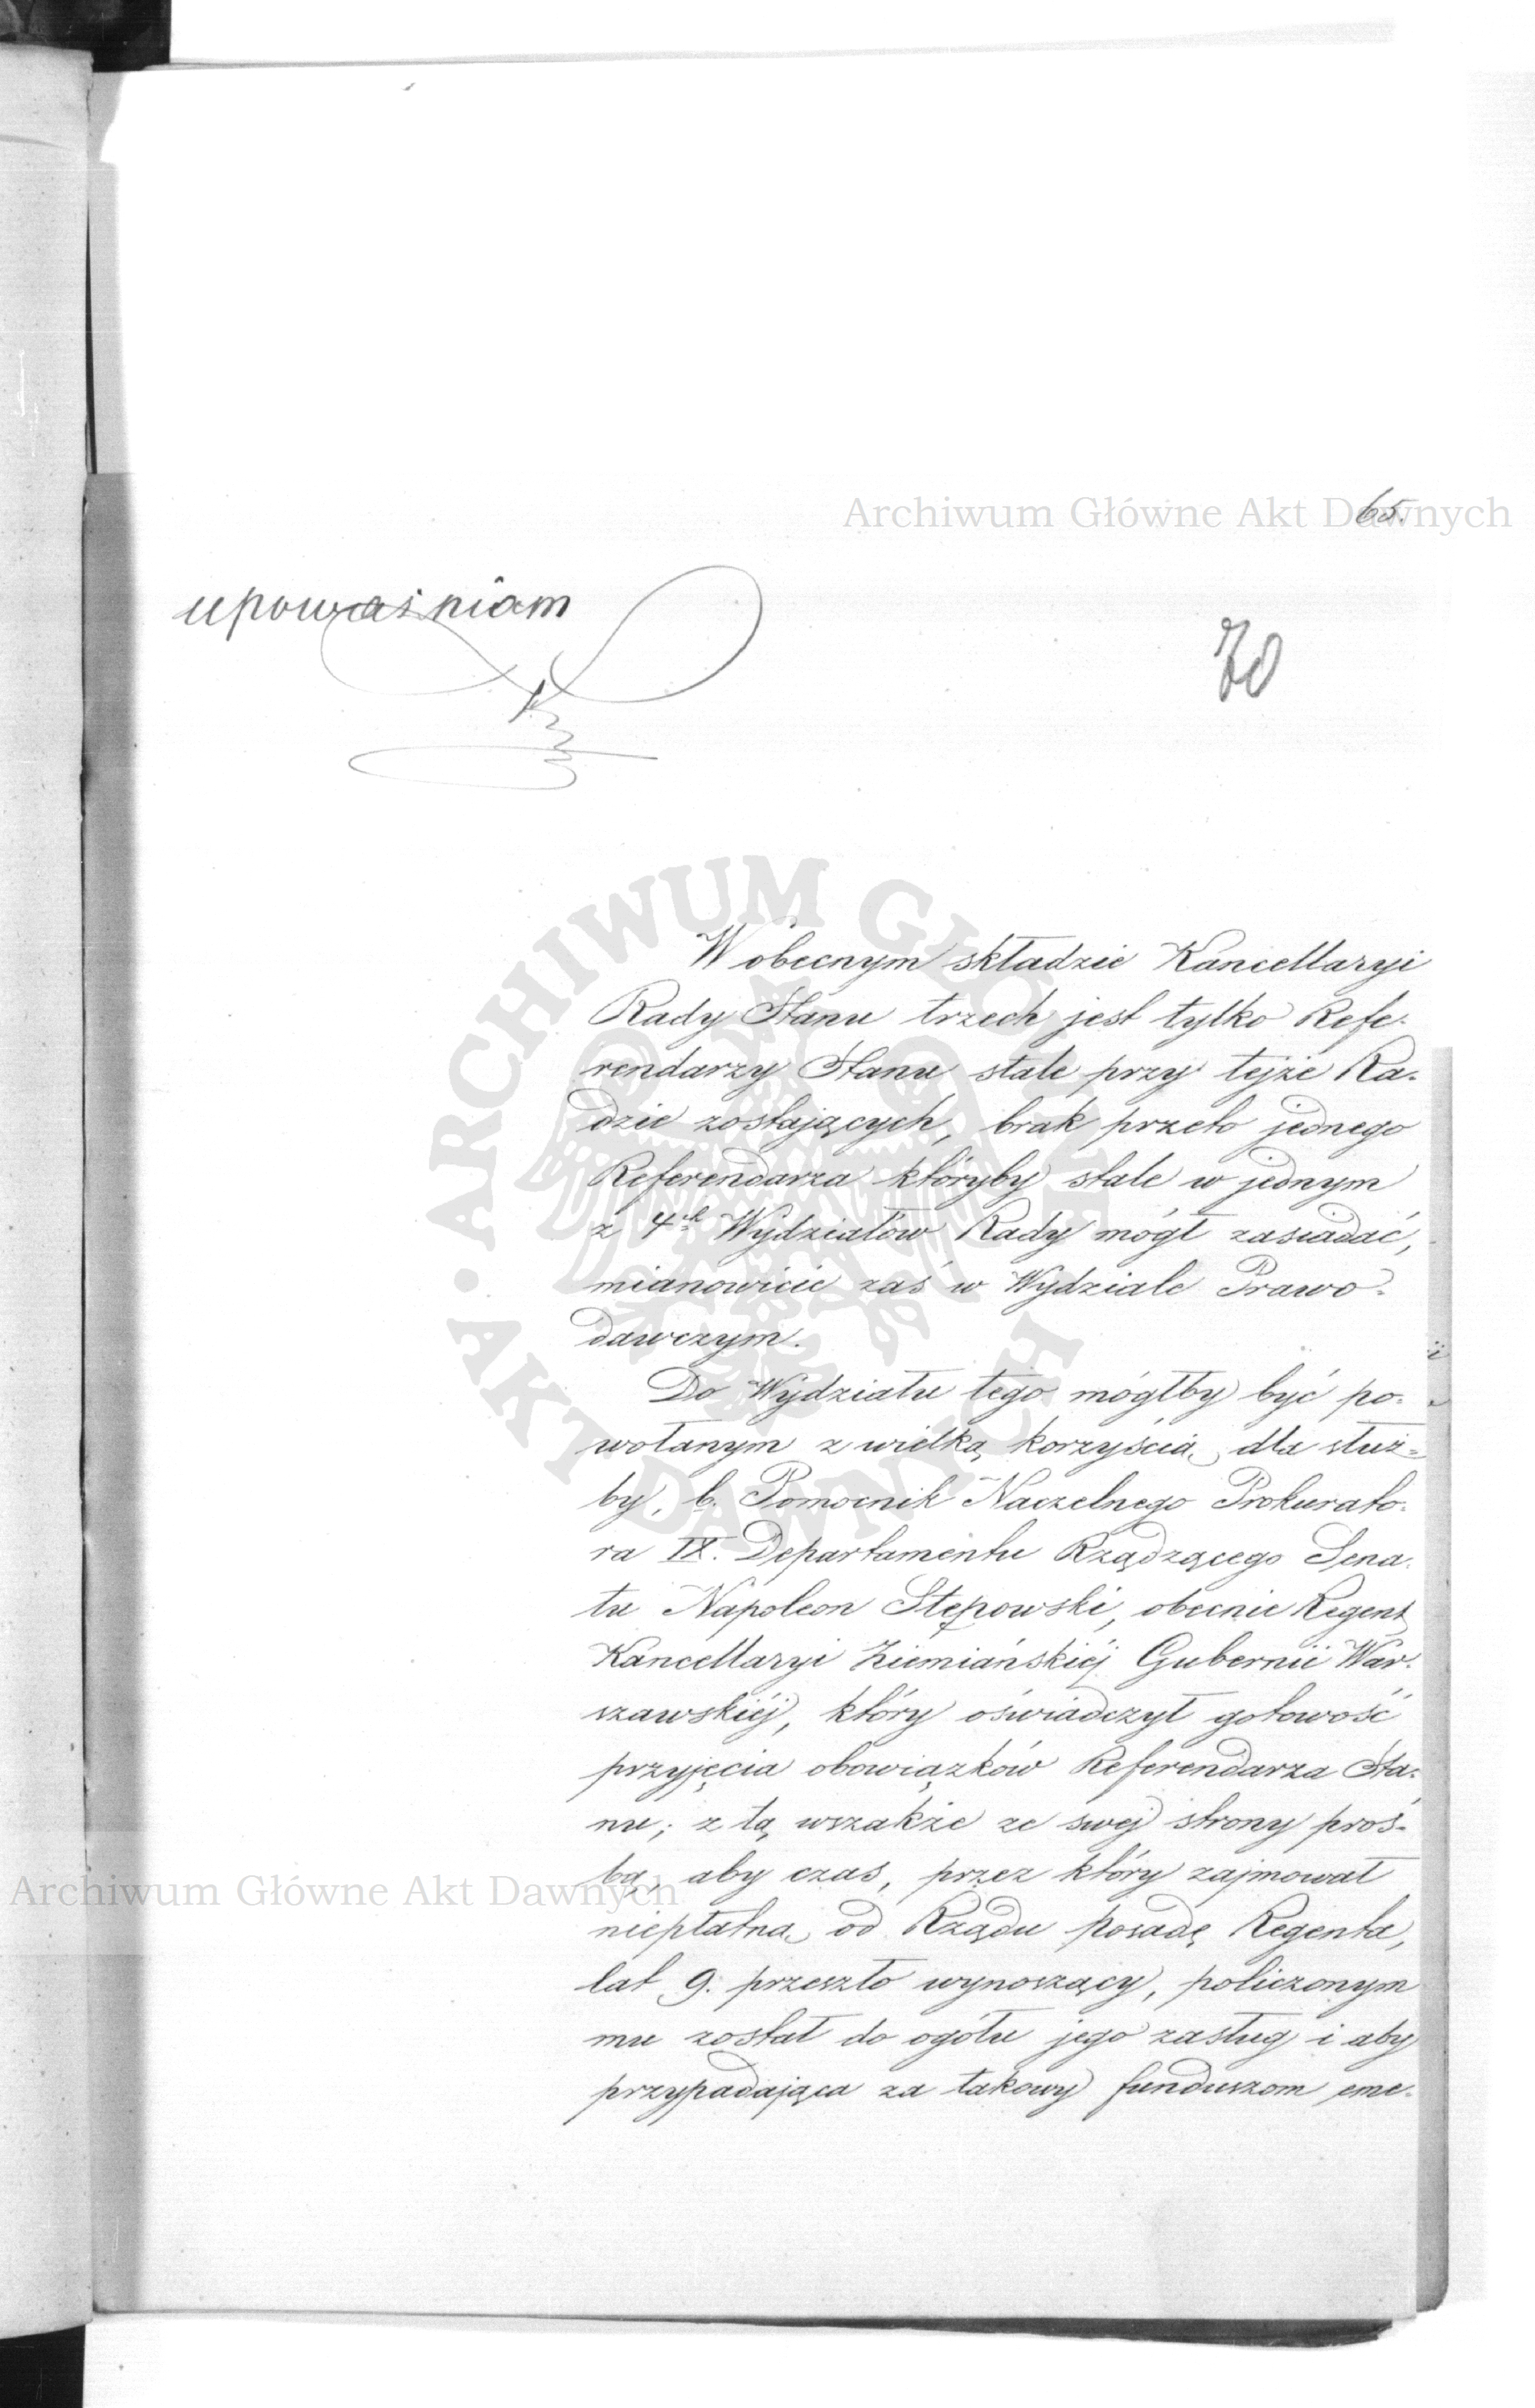 Archiwum Główne Akt Dawnych
65.
upoważniam
70
W obecnym składzie Kancellaryi
Rady Stanu trzech jest tylko Refe-
rendarzy Stanu stale przy tejże Ra-
dzie zostających, brak przeto jednego
Referendarza któryby stale w jednym
z 4ch Wydziałów Rady mógł zasiadać,
mianowicie zaś w Wydziale Prawo-
dawczym.
Do Wydziału tego mógłby być po-
wołanym z wielką korzyścią dla służ-
by, b. Pomocnik Naczelnego Prokurato-
ra IX. Departamentu Rządzącego Sena-
tu Napoleon Stępowski, obecnie Regent
Kancellaryi Ziemiańskiéj Gubernii War-
szawskiéj, który oświadczył gotowość
przyjęcia obowiązków Referendarza Sta-
nu; z tą wszakże ze swej strony proś-
bą, aby czas, przez który zajmował
niepłatną od Rządu posadę Regenta,
lat 9. przeszło wynoszący, policzonym
mu został do ogółu jego zasług i aby
przypadająca za takowy funduszom eme-
Archiwum Główne Akt Dawnych
ARCHIWUM GŁÓWNE AKT DAWNYCH